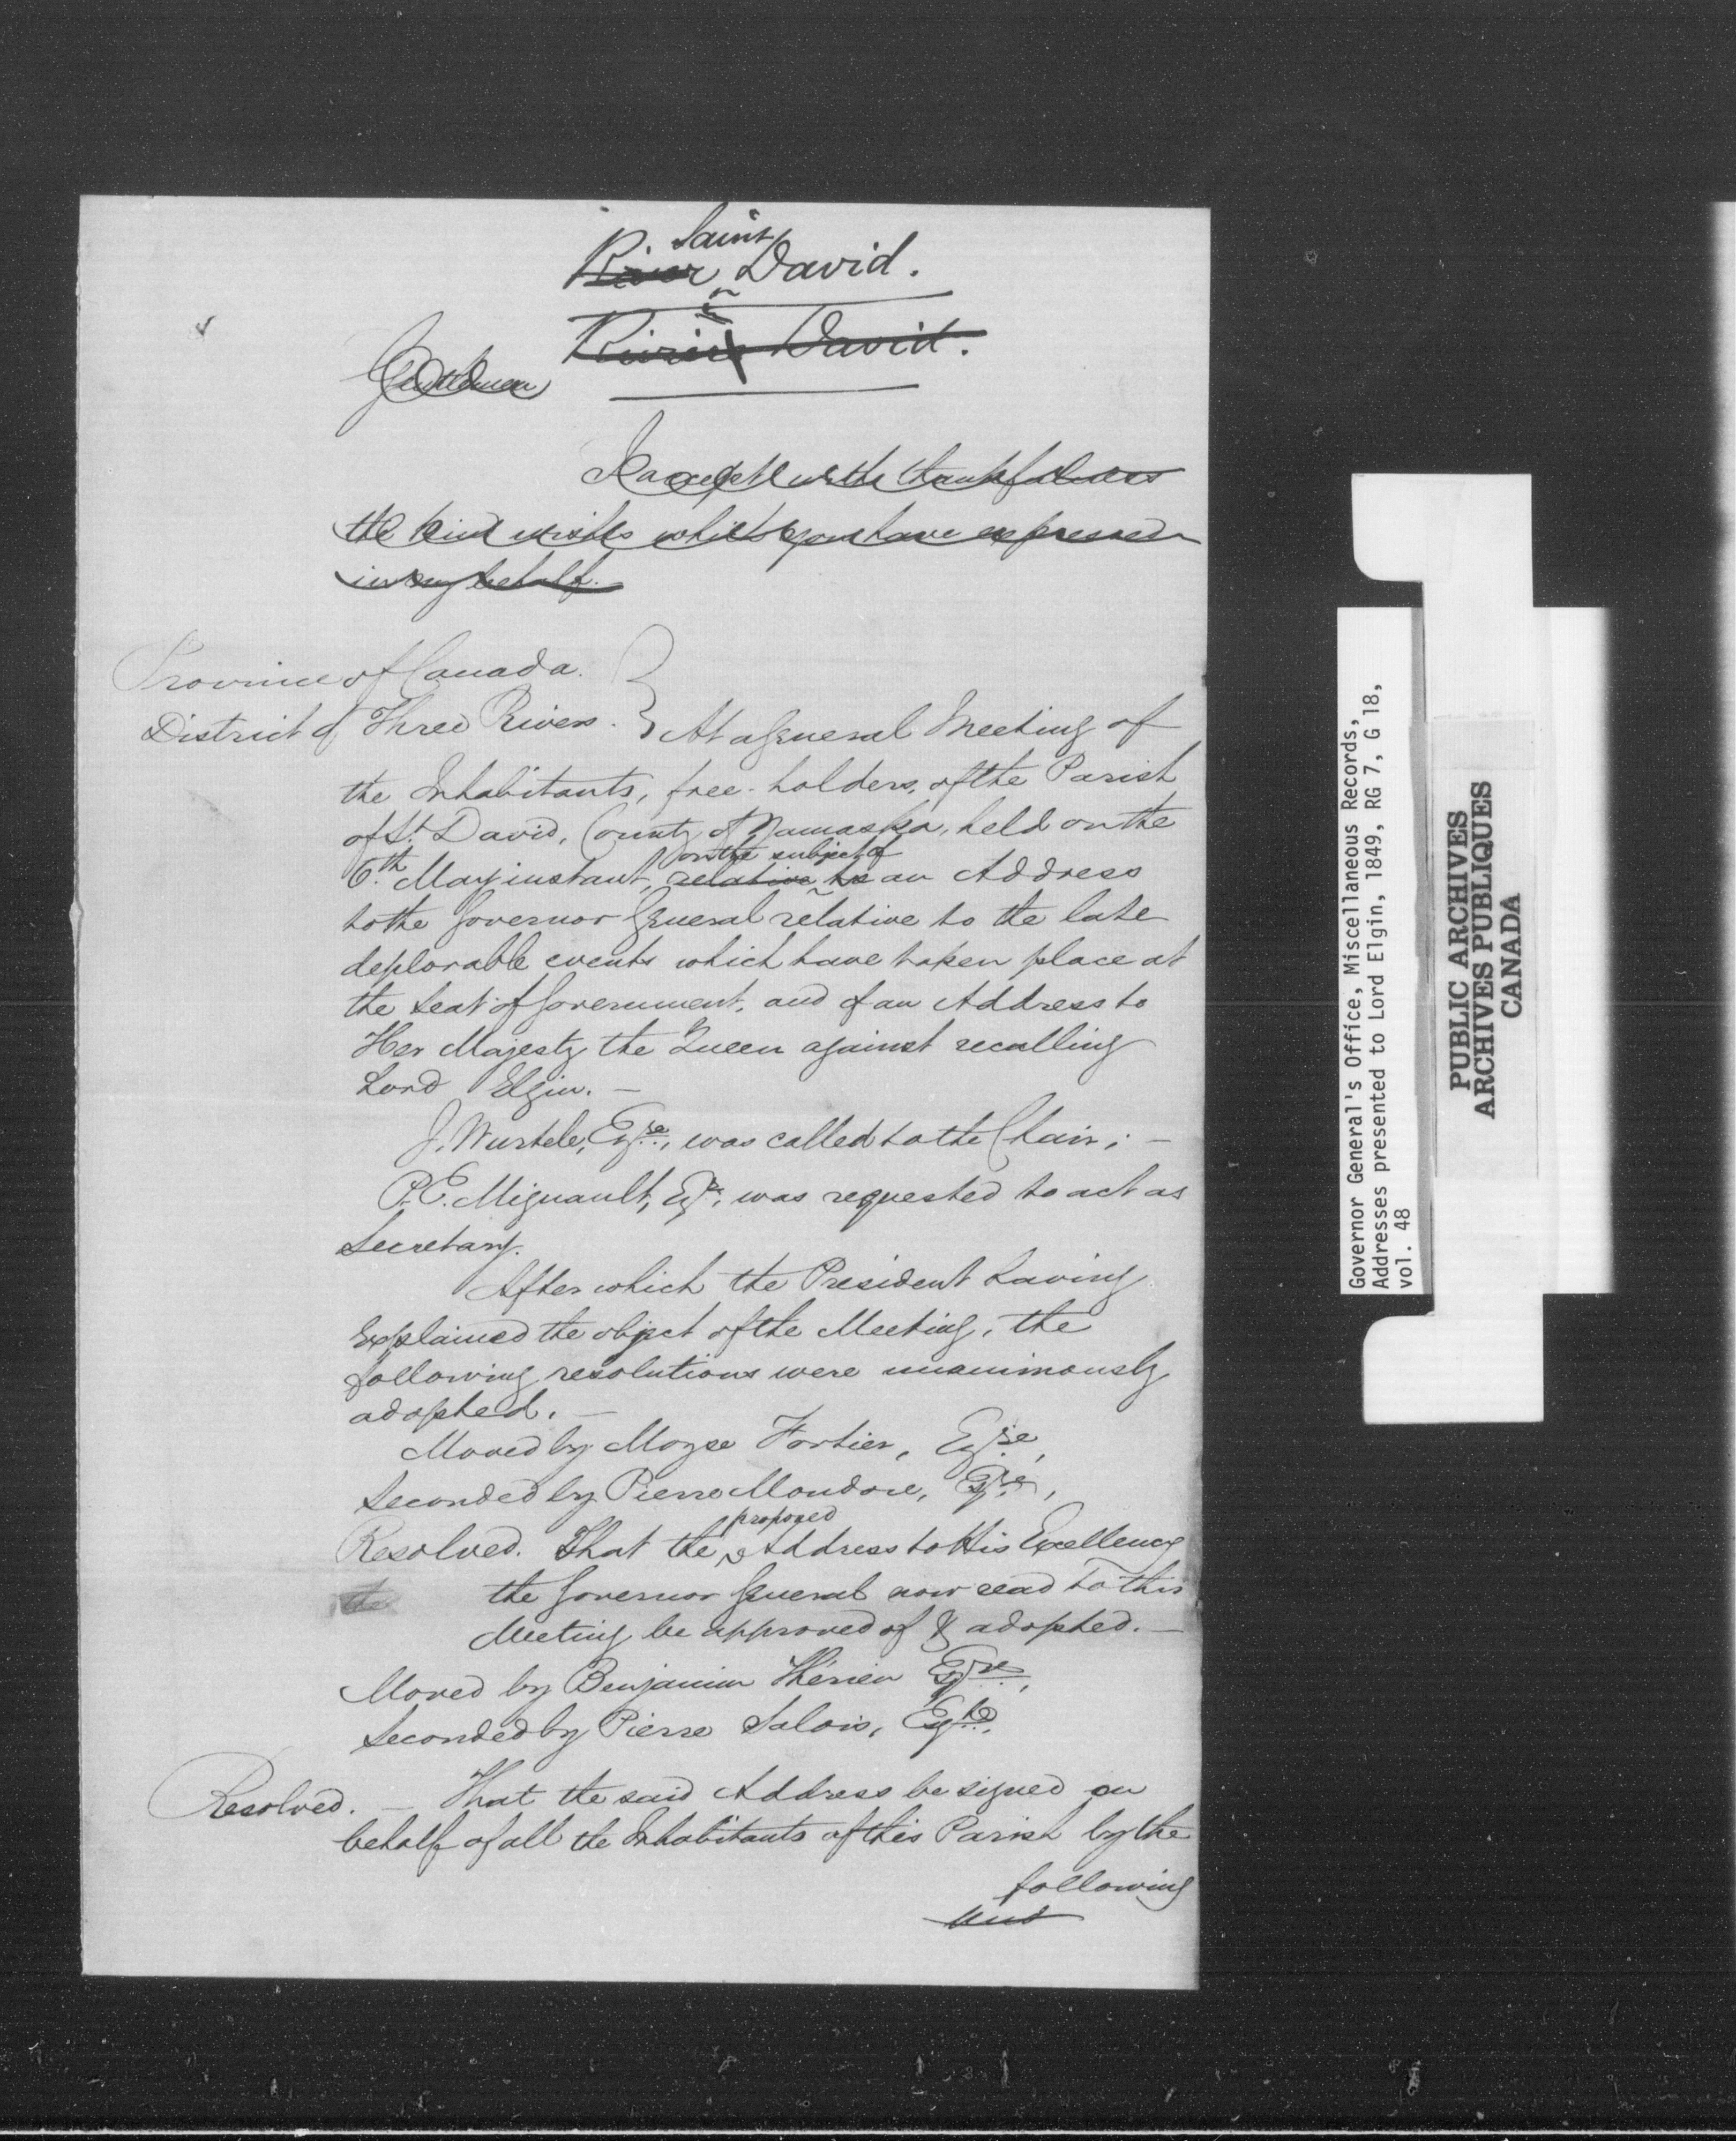 Saint
River David.
or
Rivière David.
Gentlemen
I accept with thankfulness
the kind wishes which you have expressed
in my behalf.
Province of Canada.
District of Three Rivers. } At a General Meeting of
the Inhabitants, free-holders, of the Parish
of St. David, County of Yamaska, held on the
on the subject of
6th. May instant, relative to an Address
to the Governor General relative to the late
deplorable events which have taken place at
the Seat of Government, and of an Address to
Her Majesty the Queen against recalling
Lord Elgin. —
J. Wurtele, Esqre., was called to the Chair; —
P. E. Mignault, Esqr., was requested to act as
Secretary.
After which the President having
explained the object of the Meeting, the
following resolutions were unanimously
adopted. —
Moved by Moyse Fortier, Esqre,
Seconded by Pierre Mondore, Esqre,
proposed
Resolved. That the Address to His Excellency
the the Governor General now read to this
Meeting be approved of & adopted. —
Moved by Benjamin Thérien Esqre,
Seconded by Pierre Salois, Esqre,
Resolved. — That the said Address be signed on
behalf of all the Inhabitants of this Parish by the
following
and
Governor General's Office, Miscellaneous Records,
Addresses presented to Lord Elgin, 1849, RG 7, G 18,
vol. 48
PUBLIC ARCHIVES
ARCHIVES PUBLIQUES
CANADA